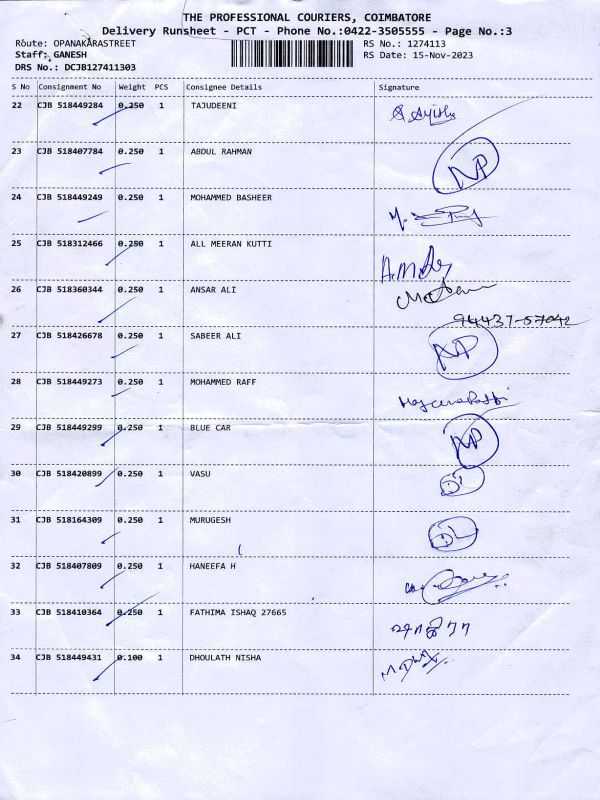 THE PROFESSIONAL COURIERS, COIMBATORE
Delivery Runsheet - PCT - Phone No.:0422-3505555 - Page No.:3
Route: OPANAKARASTREET RS No.: 1274113
Staff: GANESH RS Date: 15-Nov-2023
DRS No.: DCJB127411303
S No Consignment No Weight PCS Consignee Details Signature
22 CJB 518449284 0.250 1 TAJUDEENI
23 CJB 518407784 0.250 1 ABDUL RAHMAN NP
24 CJB 518449249 0.250 1 MOHAMMED BASHEER
25 CJB 518312466 0.250 1 ALL MEERAN KUTTI
26 CJB 518360344 0.250 1 ANSAR ALI
94437-57042
27 CJB 518426678 0.250 1 SABEER ALI NP
28 CJB 518449273 0.250 1 MOHAMMED RAFF
29 CJB 518449299 0.250 1 BLUE CAR NP
30 CJB 518420899 0.250 1 VASU DL
31 CJB 518164309 0.250 1 MURUGESH DL
32 CJB 518407809 0.250 1 HANEEFA H
33 CJB 518410364 0.250 1 FATHIMA ISHAQ 27665
34 CJB 518449431 0.100 1 DHOULATH NISHA